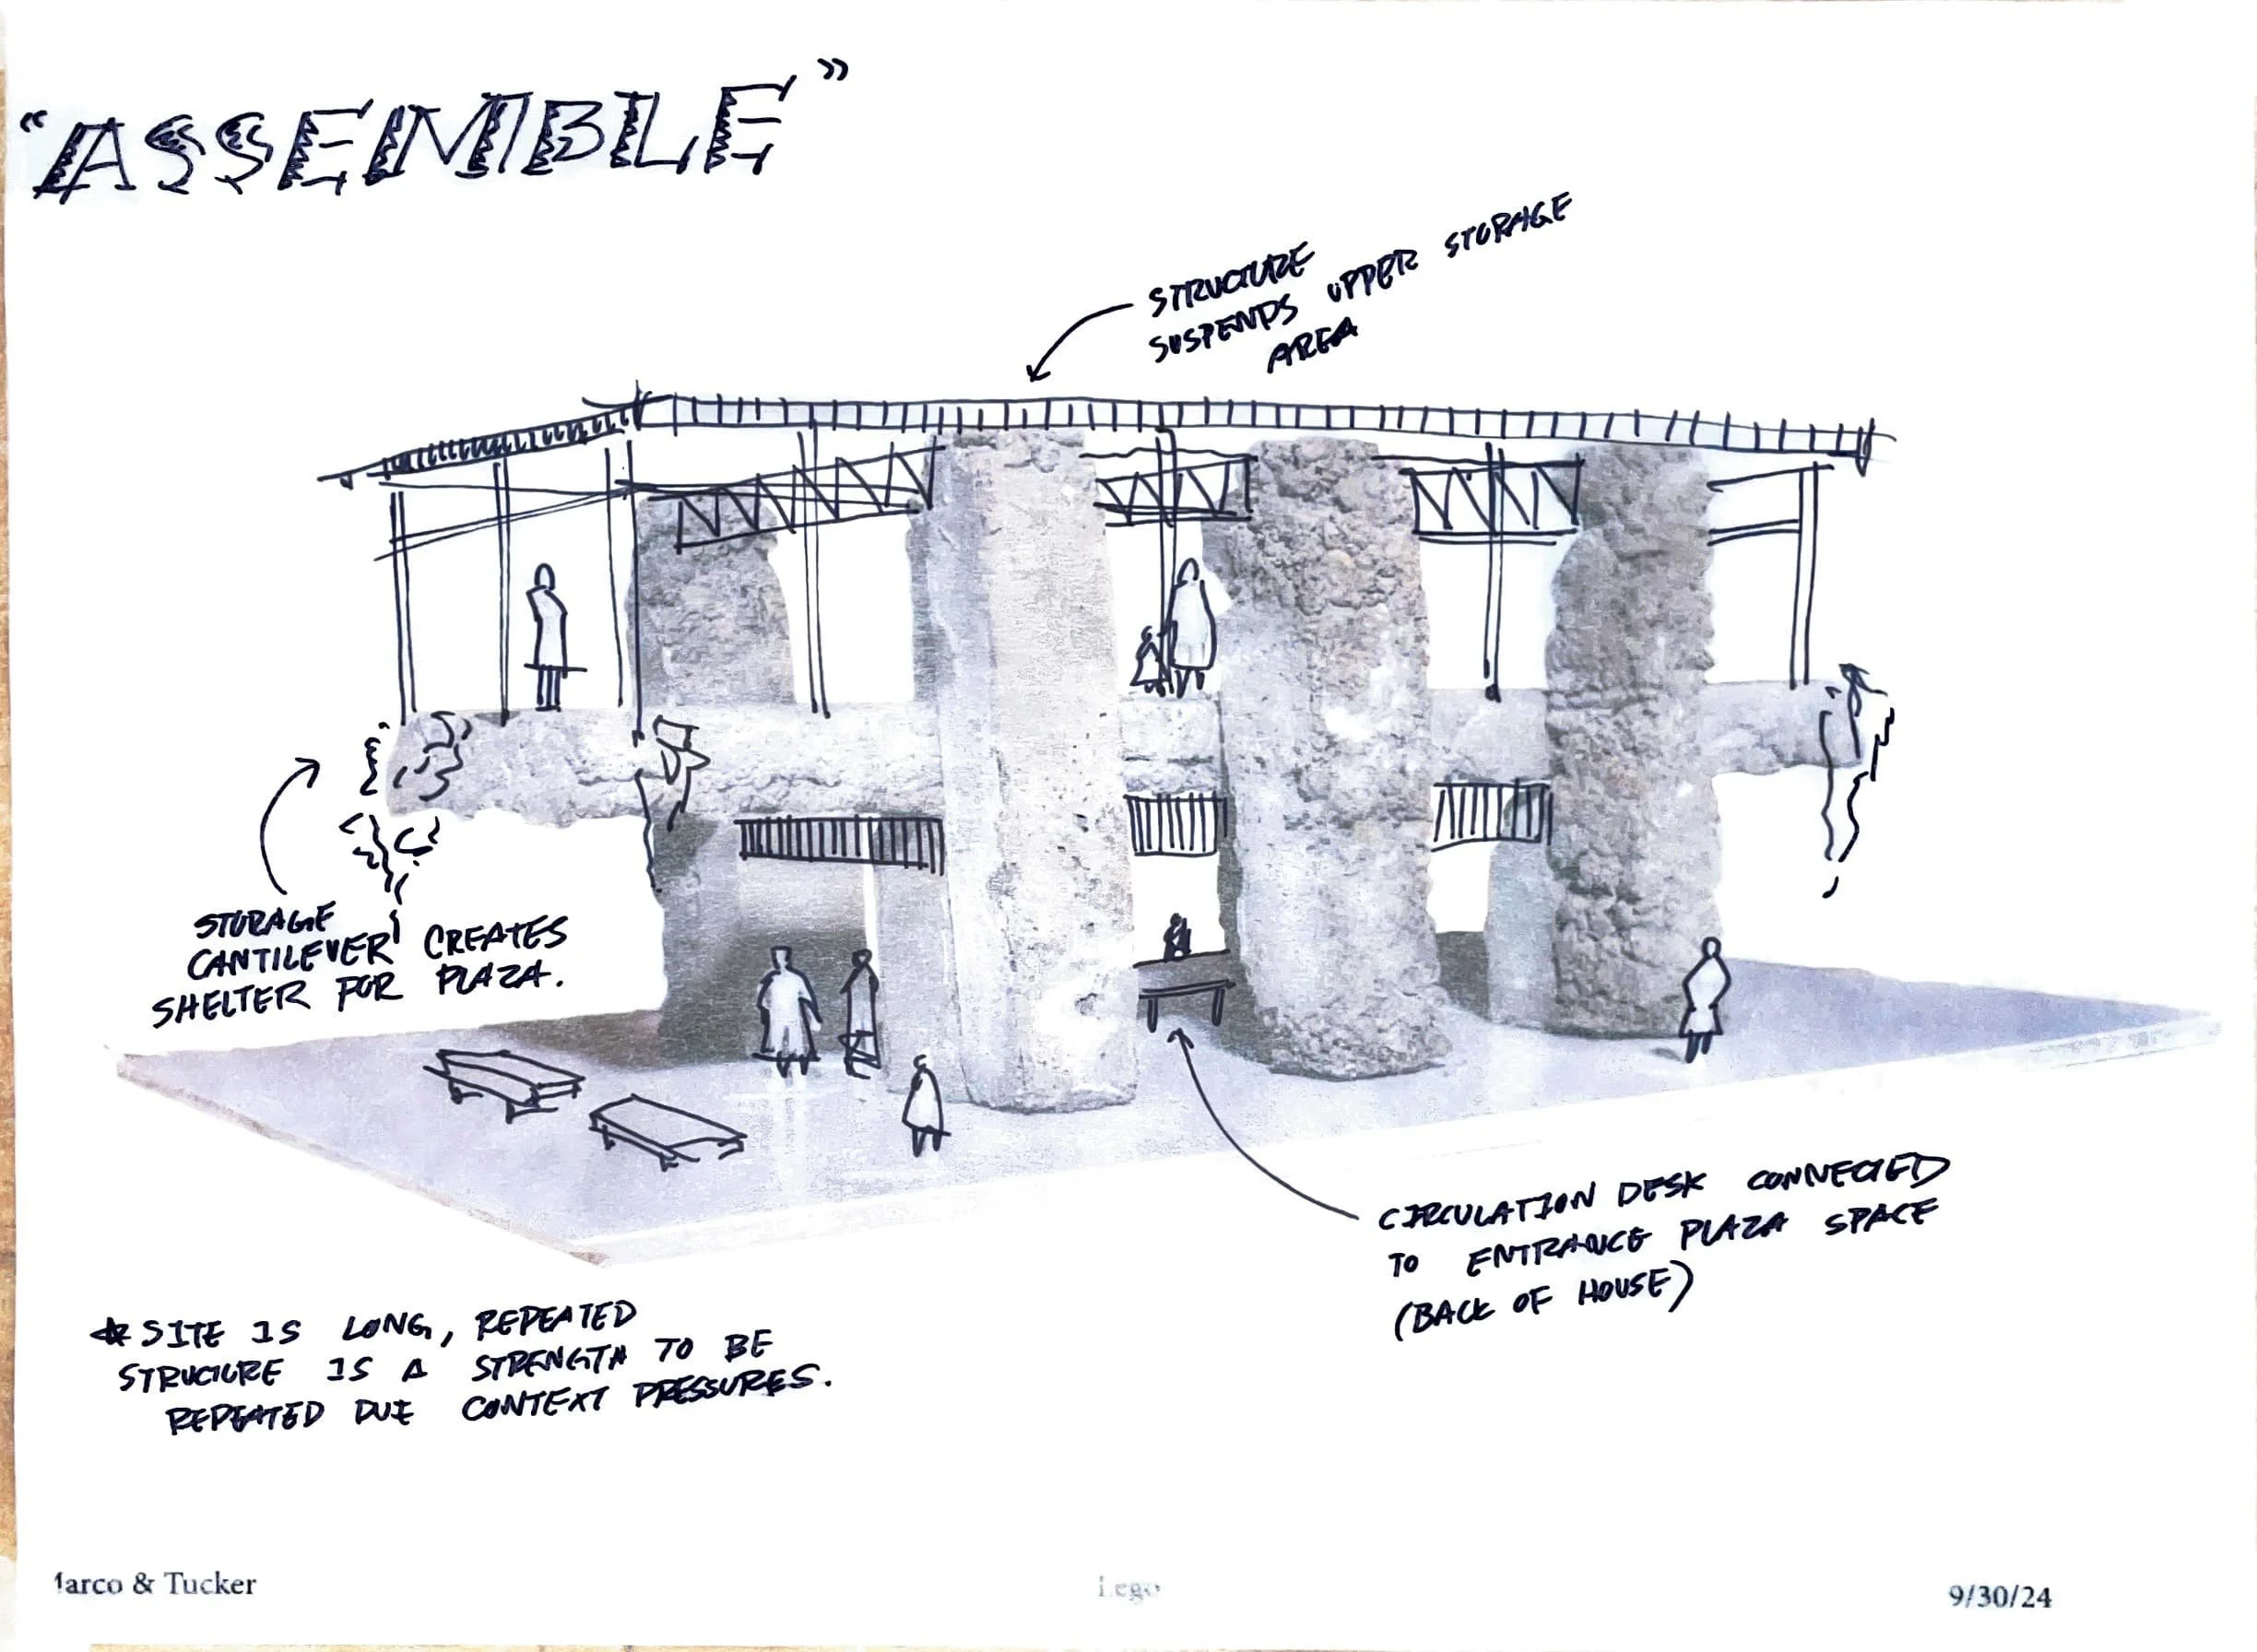 "ASSEMBLE"
STRUCTURE
SUSPENDS UPPER STORAGE
AREA
STORAGE
CANTILEVER CREATES
SHELTER FOR PLAZA.
CIRCULATION DESK CONNECTED
TO ENTRANCE PLAZA SPACE
(BACK OF HOUSE)
* SITE IS LONG, REPEATED
STRUCTURE IS A STRENGTH TO BE
REPEATED DUE CONTEXT PRESSURES.
arco & Tucker
Lego
9/30/24